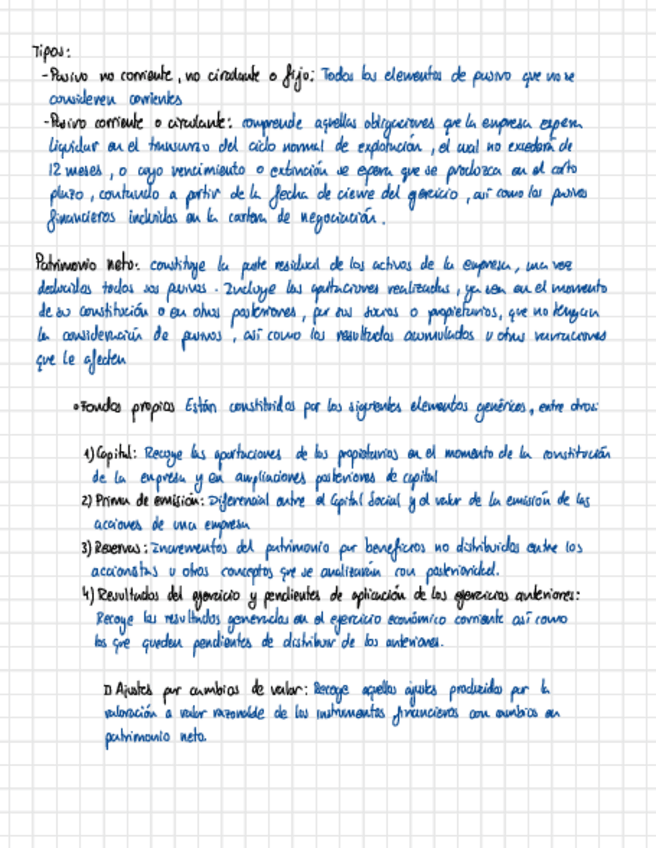 Tipos:
-Pasivo no corriente, no circulante o fijo: Todos los elementos de pasivo que no se
consideren corrientes
-Pasivo corriente o circulante: comprende aquellas obligaciones que la empresa espera
liquidar en el transurso del ciclo normal de explotación, el cual no excederá de
12 meses, o cuyo vencimiento o extinción se espera que se produzca en el corto
plazo, contando a partir de la fecha de cierre del ejercicio, así como los pasivos
financieros incluidos en la cartera de negociación.
Patrimonio neto: constituye la parte residual de los activos de la empresa, una vez
deducidos todos sus pasivos. Incluye las aportaciones realizadas, ya sea en el momento
de su constitución o en otros posteriores, por sus socios o propietarios, que no tengan
la consideración de pasivos, así como los resultados acumulados u otras variaciones
que le afecten
•Fondos propios Están constituidos por los siguientes elementos genéricos, entre otros:
1) Capital: Recoge las aportaciones de los propietarios en el momento de la constitución
de la empresa y en ampliaciones posteriores de capital
2) Prima de emisión: Diferencial entre el Capital Social y el valor de la emisión de las
acciones de una empresa
3) Reservas: Incrementos del patrimonio por beneficios no distribuidos entre los
accionistas u otros conceptos que se analizarán con posterioridad.
4) Resultados del ejercicio y pendientes de aplicación de los ejercicios anteriores:
Recoge los resultados generados en el ejercicio económico corriente así como
los que queden pendientes de distribuir de los anteriores.
Ajustes por cambios de valor: Recoge aquellos ajustes producidos por la
valoración a valor razonable de los instrumentos financieros con cambios en
patrimonio neto.